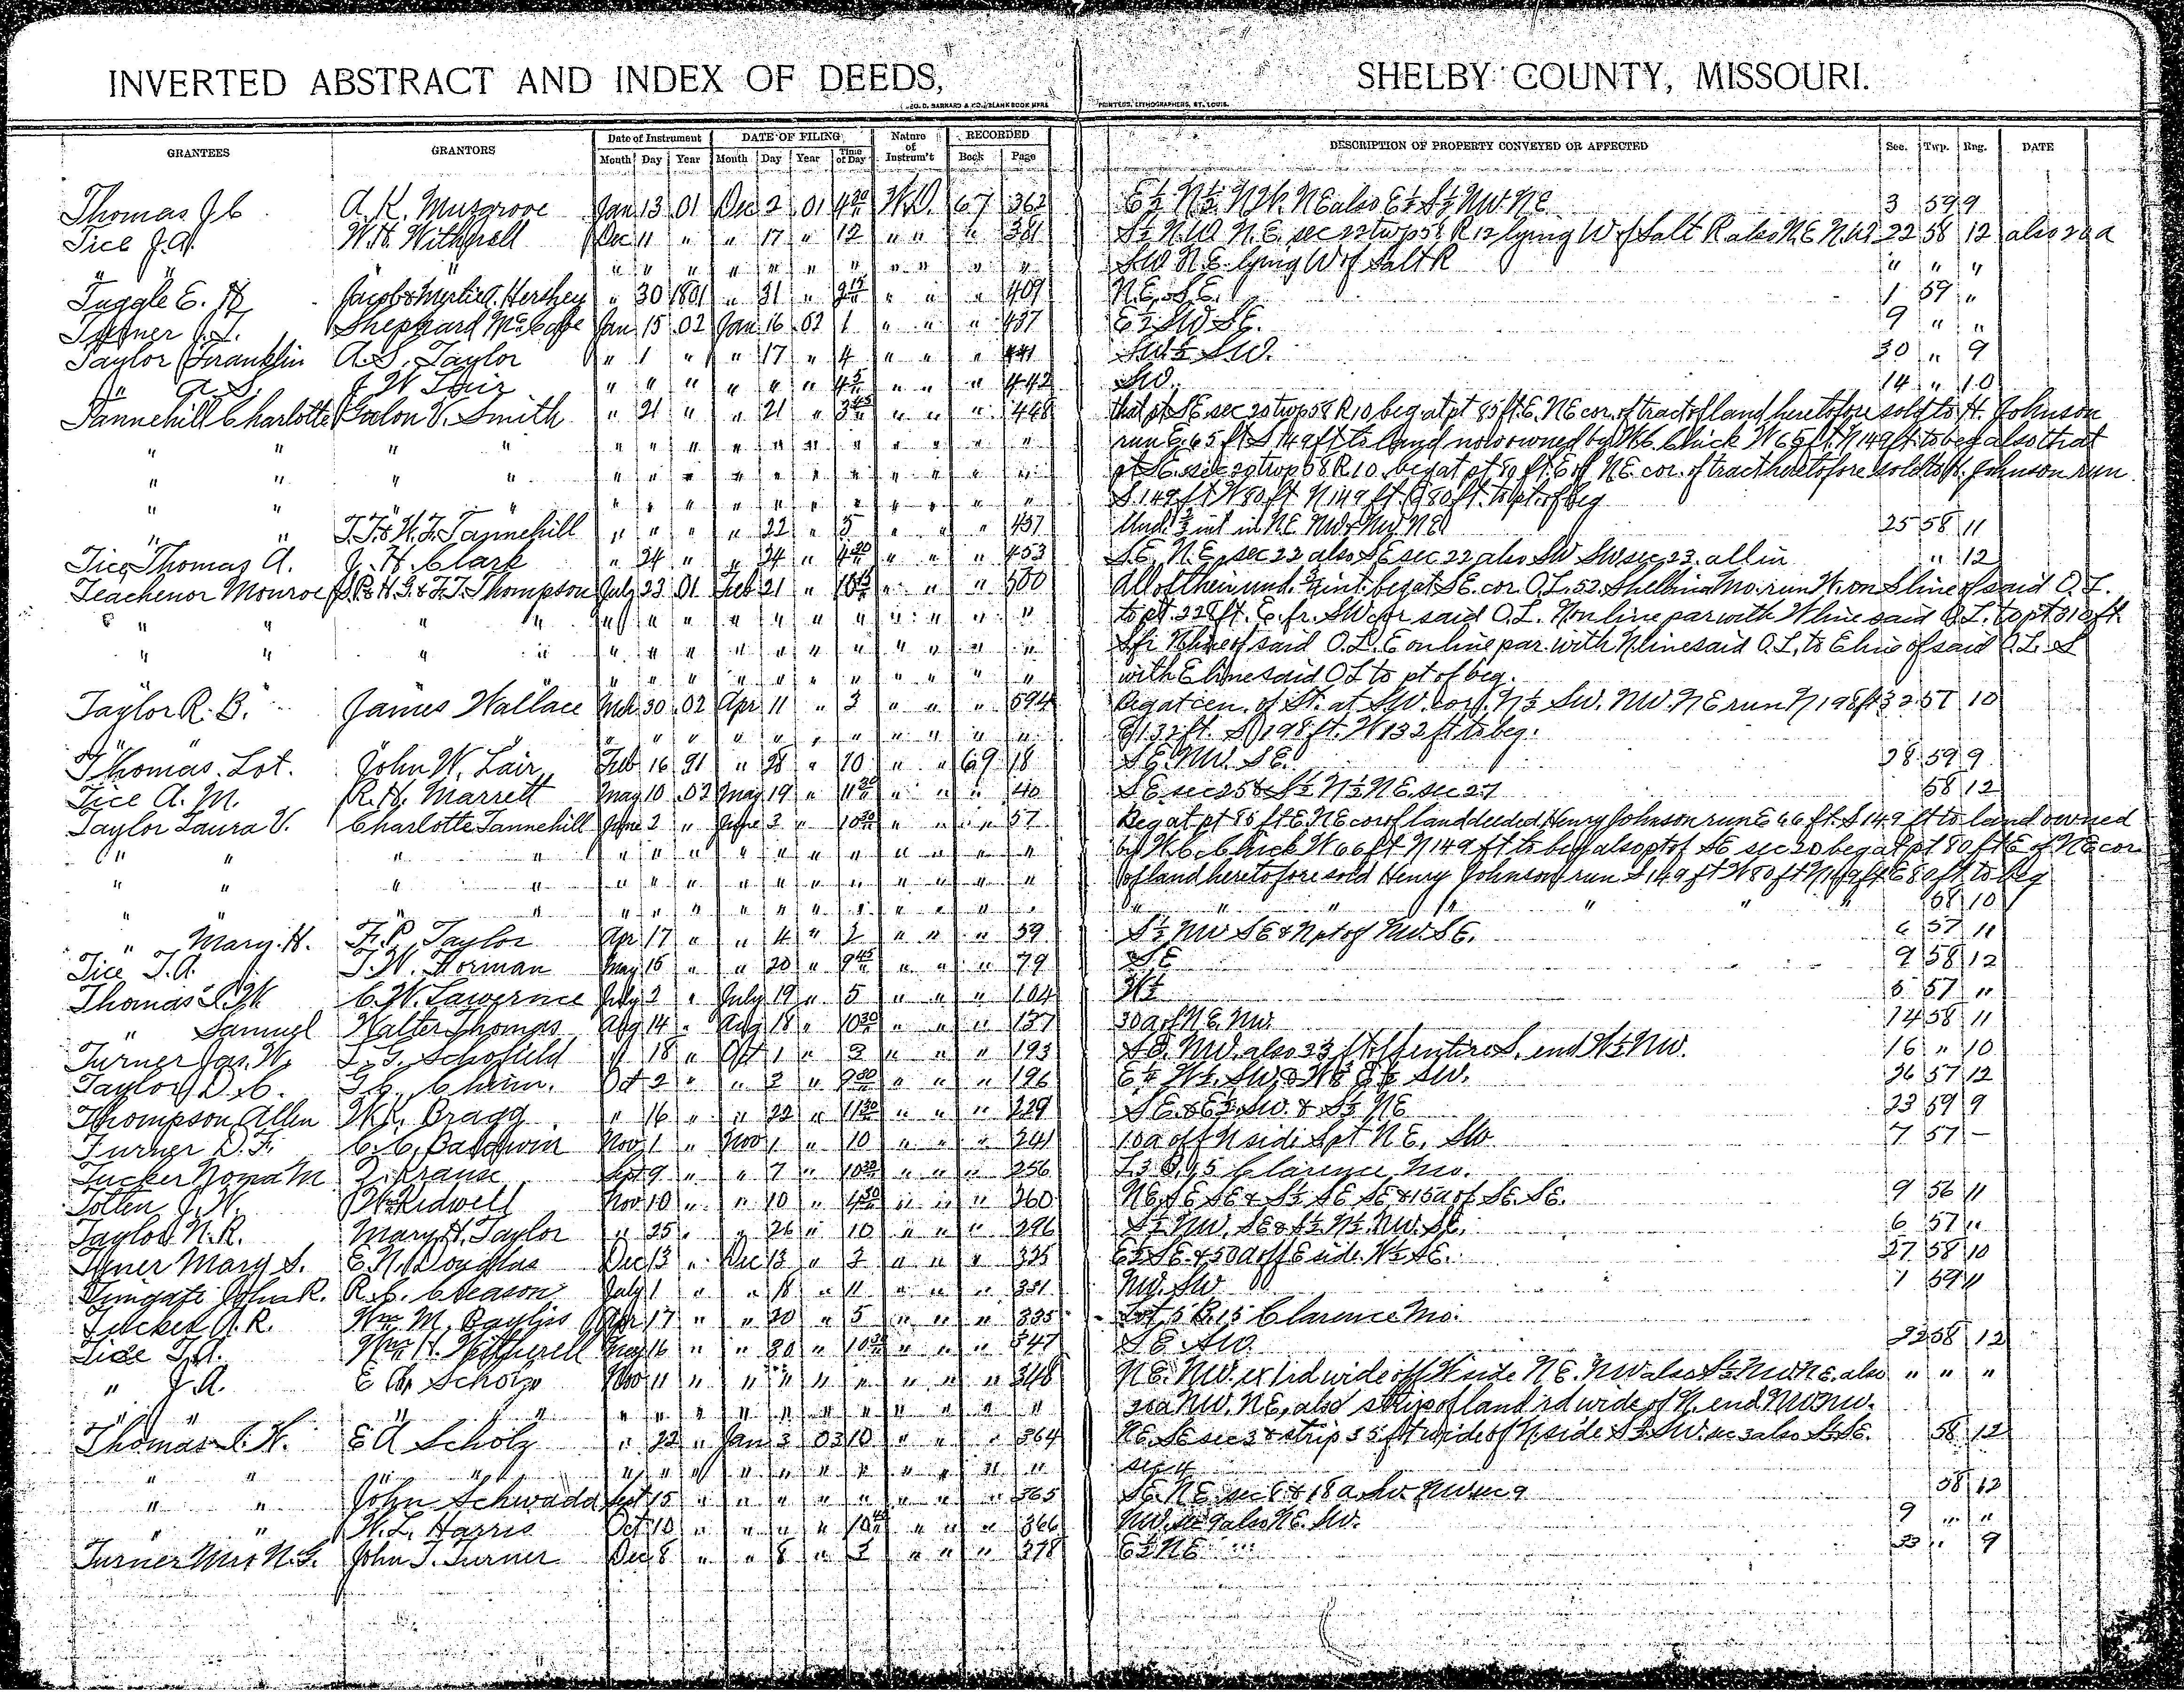 INVERTED ABSTRACT AND INDEX OF DEEDS, SHELBY COUNTY, MISSOURI.
GEO. D. BARNARD & CO., BLANK BOOK MFRS PRINTERS, LITHOGRAPHERS, ST. LOUIS.
GRANTEES GRANTORS Date of Instrument DATE OF FILING Nature of Instrum't RECORDED DESCRIPTION OF PROPERTY CONVEYED OR AFFECTED Sec. Twp. Rng. DATE
Month Day Year Month Day Year Time of Day Book Page
Thomas J C A. K. Musgrove Jan 13 01 Dec 2 01 4 30 W.D. 67 362 E½ N½ NW. NE also E½ S½ NW. NE 3 59 9
Tice J. A. W. H. Witherell Dec 11 " " 17 " 12 " " " 381 S½ N.W. N.E. sec 22 twp 58 R 12 lying W of Salt R also N.E. N.W. 22 58 12 also 20 a
" " " " " " " " " " " " SW N.E. lying W of Salt R " " "
Tuggle E. H. Jacob & Myrtie A. Hershey " 30 1801 " 31 " 9 15 " " " 409 N.E. S.E. 1 59 "
Turner J. T. Shephard McCabe Jan 15 02 Jan 16 02 1 " " " 437 E½ SW SE. 9 " "
Taylor Franklin A. S. Taylor " 1 " " 17 " 4 " " " 441 SW. 30 " 9
" A. S. J. W. Lair " " " " " " 4 5 " " " 442 SW. 14 " 10
Tannehill Charlotte Galon V. Smith " 21 " " 21 " 3 45 " " " 448 that pt SE sec 20 twp 58 R 10 beg at pt 85 ft E. NE cor. of tract of land heretofore sold to H. Johnson
" " " " " " " " " " " " " run E. 65 ft S 149 ft to land now owned by W.C. Chick W 65 ft N 149 ft to beg also that
" " " " " " " " " " " " " pt SE sec 20 twp 58 R 10 beg at pt 80 ft E of NE cor. of tract heretofore sold to H. Johnson run
" " " " " " " " " " " " " S 149 ft W 80 ft N 149 ft E 80 ft. to pt. of beg
" " T. F. & W. F. Tannehill " " " " 22 " 5 " " 457 Und. ½ int in NE NW & NW NE 25 58 11
Tice Thomas A. J. H. Clark " 24 " " 24 " 4 30 " " " 453 SE. NE, sec 22 also SE sec 22 also SW SW sec 23. all in " 12
Teachenor Monroe H. G. & F. T. Thompson July 23 01 Feb 21 " 10 45 " " " 500 All of their und. int. beg at SE. cor. O.L. 52. Shelbina Mo. run W. on S line of said O. L.
" " " " " " " " " " " " to pt. 228 ft. E. fr. SW cor said O. L. N on line par with W line said O. L. to pt 310 ft
" " " " " " " " " " " " S fr N line of said O. L. E on line par. with N line said O.L. to E line of said O. L. S
" " " " " " " " " " with E line said O.L to pt of beg.
Taylor R. B. James Wallace Mch 30 02 Apr 11 " 3 " " " 594 Beg at cen. of St. at SW. cor. N½ SW. NW. NE run N 198 ft 32 57 10
" " " " " " " " " " " E 132 ft. S 198 ft. W 132 ft to beg.
Thomas Lot. John W. Lair Feb 16 91 " 28 " 10 " " 69 18 SE. NW. SE. 28 59 9
Tice A. M. R. H. Marrett May 10 02 May 19 " 11 30 " " " 40 SE sec 25 & S½ N½ NE. sec 27 58 12
Taylor Laura V. Charlotte Tannehill June 2 " June 3 " 10 30 " " " 57 Beg at pt 85 ft E. NE cor of land deeded Henry Johnson run E 66 ft. S 149 ft to land owned
" " " " " " " " " " " " by W. C. Chick W 66 ft N 149 ft to beg also pt of SE sec 20 beg at pt 80 ft E of NE cor
" " " " " " " " " " " " of land heretofore sold Henry Johnson run S 149 ft W 80 ft N 149 ft E 80 ft to beg
" " " " " " " " " " " " " " " " " 58 10
" Mary H. F. P. Taylor Apr 17 " " 4 " 2 " " " 59 S½ NW SE & N pt of NW. SE. 6 57 11
Tice T. A. T. W. Forman May 15 " " 20 " 9 45 " " " 79 SE 9 58 12
Thomas S. W C. W. Lawrence July 2 " July 19 " 5 " " " 104 W½ 5 57 "
" Samuel Walter Thomas Aug 14 " Aug 18 " 10 30 " " " 137 30 a of NE. NW. 14 58 11
Turner Jas. W. L. T. Schofield " 18 " Oct 1 " 2 " " " 193 SE. NW. also 33 ft off entire S. end W½ NW. 16 " 10
Taylor D. C. Oct 2 " " 2 " 9 30 " " " 196 E½ W½. SW. & W½ E½ SW. 36 57 12
Thompson Allen W. K. Bragg " 16 " " 22 " 11 30 " " " 229 SE & E½ SW. & S½ NE 23 59 9
Turner D. F. C. C. Baldwin Nov 1 " Nov 1 " 10 " " " 241 10 a off N side S pt NE. SW. 7 57 –
Tucker Noma M Z. Krause Sept 9 " " 7 " 10 30 " " " 256 L 3 B. 95 Clarence, Mo.
Totten J. W. Kidwell Nov 10 " " 10 " 4 30 " " " 260 NE SE SE & S½ SE SE & 15 a of SE. SE. 9 56 11
Taylor N. R. Mary H. Taylor " 25 " " 26 " 10 " " " 296 S½ NW. SE & S½ N½ NW. SE. 6 57 "
Tyner Mary S. E. N. Douglas Dec 13 " Dec 13 " 2 " " " 325 E½ SE. & 50 a off E side. W½ SE. 27 58 10
Wingate John R. R. C. Cleason July 1 " " 18 " 11 " " " 331 NW. SW 1 59 11
Tucker A. R. Wm. M. Bayliss Apr 17 " " 20 " 5 " " " 335 Lot 5 B. 15 Clarence Mo.
Tice T. A. Wm. H. Witherell May 16 " " 30 " 10 30 " " " 347 SE. SW. 22 58 12
" J. A. E A Scholz Nov 11 " " " " " " " " 348 NE. NW. ex 1 rd wide off W side NE. NW also S½ NW. NE. also " " "
" " " " " " " " " " " " " " 20 a NW. NE, also strip of land rd wide of N. end NW. NW.
Thomas S. W. E A Scholz " 22 " Jan 3 03 10 " " " 364 NE. SE sec 3 & strip 35 ft wide of N side S½ SW. sec 3 also SE. 58 12
" " " " " " " " " " " " " " sec 4
" " John Schwada Sept 15 " " " " " " " " 365 SE. NE sec 8 & 18 a SW. NW sec 9 58 12
" " W. L. Harris Oct 10 " " " " 10 " " " 366 NW. also NE. SW. 9 " "
Turner Mrs N. G. John T. Turner Dec 8 " " 8 " 2 " " " 378 E½ NE 33 " 9